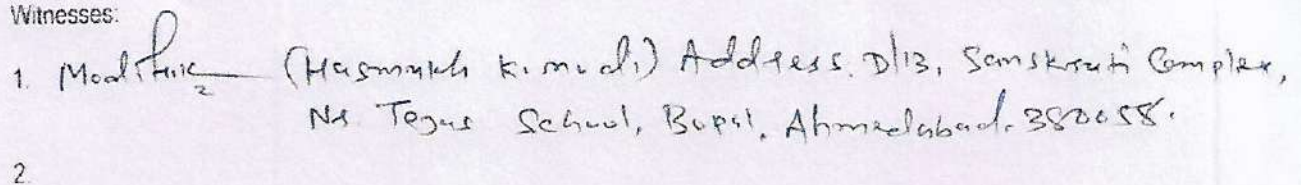 Witnesses:
1. (Hasmukh K. modi) Address. D/13, Samskruti Complex,
Nr. Tejus School, Bopal, Ahmedabad. 380058.
2.